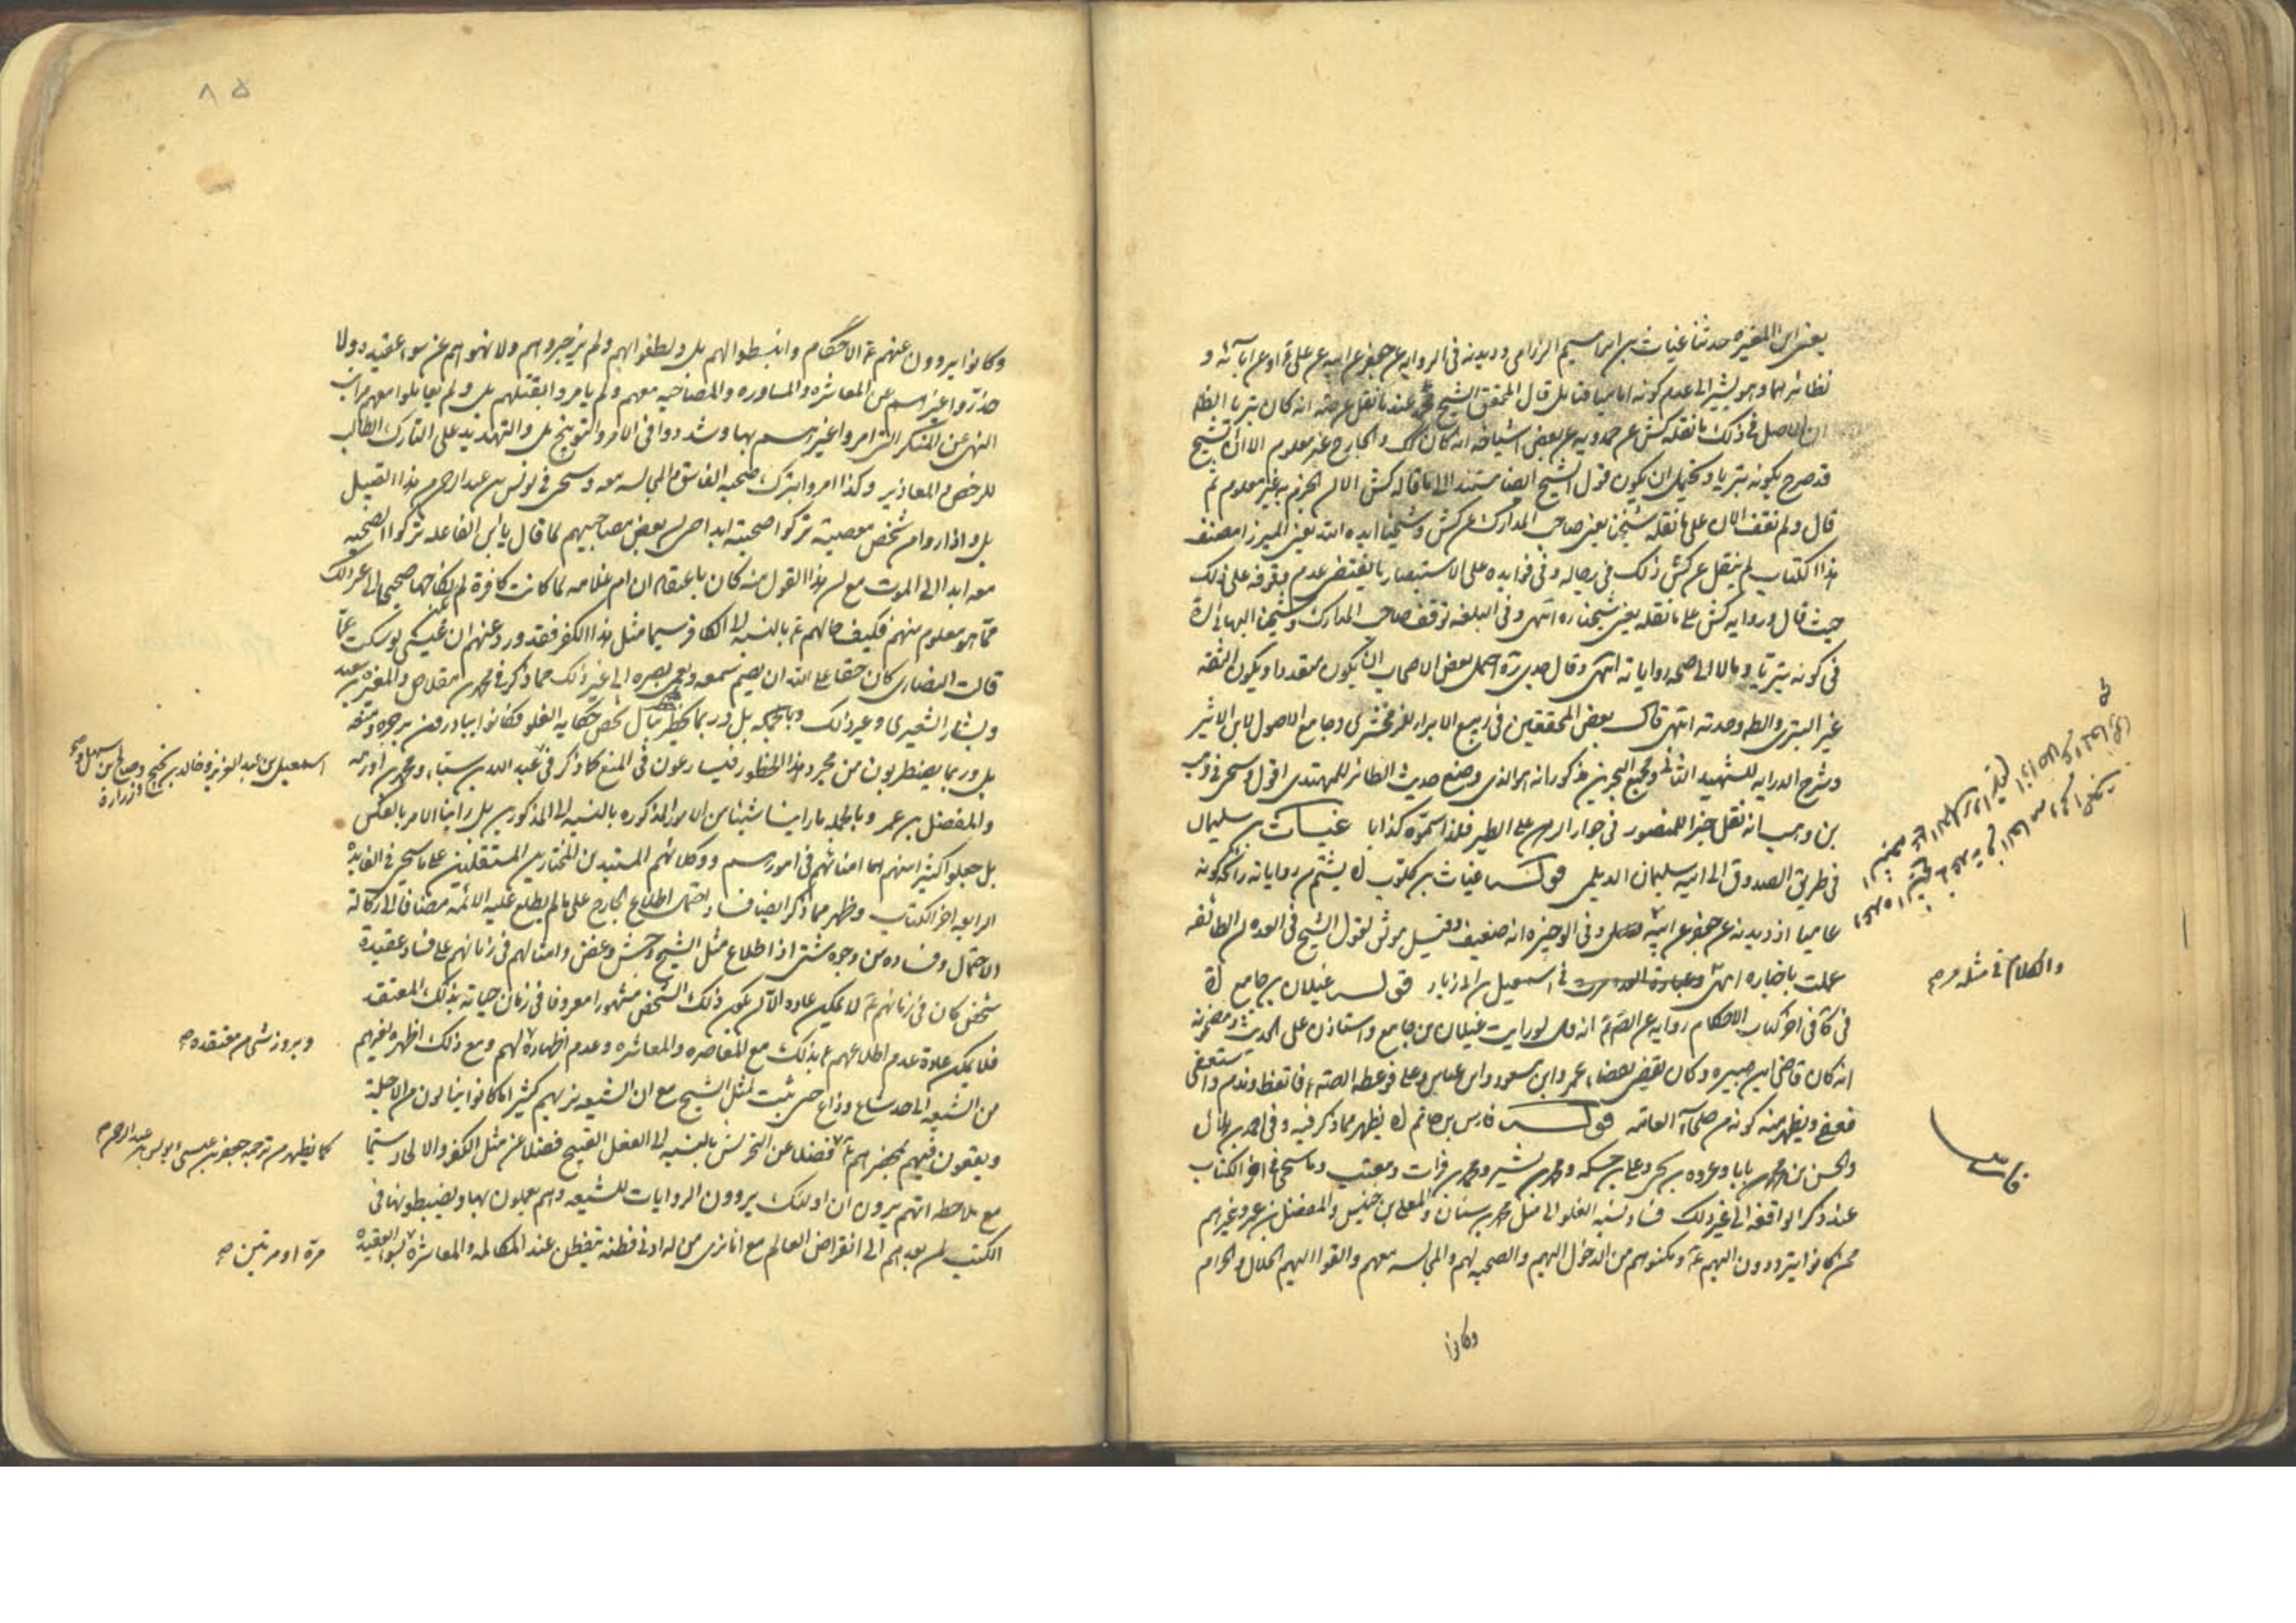 يعنى ابن المغيرة حدثنا غياث بن ابراهيم الرزامى وديدنه فى الرواية عن جعفر عن ابيه عن على ع او عن آبائه و
نظائرهما وهو يشير الى عدم كونه اماميا فتأمل قال المحقق الشيخ محمد عند ما نقل عن جه انه كان بتريا الظاهر
ان الاصل فى ذلك ما نقله كش عن حمدويه عن بعض اشياخه انه كان كذلك والجارح غير معلوم الا ان الشيخ
قد صرح بكونه بتريا ويحتمل ان يكون قول الشيخ ايضا مستندا الى ما قاله كش الا ان الجزم به غير معلوم ثم
قال ولم نقف الان على ما نقله شيخنا يعنى صاحب المدارك عن كش وشيخنا ايده الله يعنى الميرزا مصنف
هذا الكتاب لم ينقل عن كش ذلك فى رجاله وفى فوايده على الاستبصار ما يقتضى عدم وقوفه على ذلك
حيث قال ورواية كش على ما نقله يعنى شيخنا ره انتهى وفى البلغة توقف صاحب المدارك وشيخنا البهائى ره
فى كونه بتريا ومالا الى صحة رواياته انتهى وقال جدى ره احتمل بعض الاصحاب ان يكون متعددا ويكون الثقة
غير البترى والظ وحدته انتهى قال بعض المحققين فى ربيع الابرار للزمخشرى وجامع الاصول لابن الاثير
وشرح الدراية للشهيد الثانى ومجمع البحرين مذكور انه هو الذى وضع حديث الطائر للمهدى اقول وسيجى فى وهب
بن وهب انه نقل خبرا للمنصور فى جواز الرهن على الطير فلذا سموه كذابا غياث بن سليمان
فى طريق الصدوق الى ابيه سليمان الديلمى قوله غياث بن كلوب اه يشم من رواياته رائحة كونه
عاميا اذ ديدنه عن جعفر عن ابيه وفى الوجيزة انه ضعيف وقيل موثق لقول الشيخ فى العدة ان الطائفة
عملت باخباره انتهى فى اسمعيل بن ابى زياد قوله غيلان بن جامع اه
فى كافى اخر كتاب الاحكام رواية عن الصادق ع انه قال لو رايت غيلان بن جامع واستاذن على الحديث ومضمونه
انه كان قاضى ابن هبيرة وكان يقضى بقضاء عمر وابن مسعود وابن عباس وعلى فوعظه الصادق ع فاتعظ وندم واستعفى
فعفى ويظهر منه كونه من صلحاء العامة قوله فارس بن حاتم اه يظهر مما ذكر فيه وفى احمد بن هلال
والحسن بن محمد بن بابا وعروة بن يحيى وعلى بن حسكه ومحمد بن بشير ومحمد بن فرات ومعتب وما سيجى فى اخر الكتاب
عند ذكر الواقفة الى غير ذلك فساد نسبة الغلو الى مثل محمد بن سنان والمعلى بن خنيس والمفضل بن عمر وغيرهم
ممن كانوا يترددون اليهم ع ومكنوهم من الدخول اليهم والصحبة لهم والمجالسة معهم والقوا اليهم الحلال والحرام
وكانوا
والكلام فى مثله مر م
فارس
٨٥
وكانوا يروون عنهم ع الاحكام وانبسطوا لهم بل ولطفوا بهم ولم يزجروهم ولا نهوهم عن سوء عقيدة ولا
حذروا غيرهم عن المعاشرة والمساورة والمصاحبة معهم ولم يامروا بقتلهم بل ولم يعاملوا معهم مراتب
النهى عن المنكر التى امروا غيرهم بها وشددوا فى الامر والتوبيخ بل والتهديد على التارك الطالب
للرخص والمعاذير وكذا امروا بترك صحبة الفاسق والمجالسة معه وسيجى فى يونس بن عبد الرحمن من هذا القبيل
بل واذا راوا من شخص معصية تركوا صحبته ابدا حتى ان بعض مصاحبيهم لما قال يا بن الفاعلة تركوا الصحبة
معه ابدا الى الموت مع ان هذا القول منه كان باعتقاد ان ام غلامه لما كانت كافرة لم يكن نكاحها صحيحا الى غير ذلك
مما هو معلوم منهم فكيف حالهم ع بالنسبة الى الكافر سيما مثل هذا الكفر فقد ورد عنهم ان عيسى لو سكت عما
قالت النصارى كان حقا على الله ان يصم سمعه ويعمى بصره الى غير ذلك مما ذكر فى محمد بن مقلاص والمغيرة بن سعيد
وبشار الشعيرى وغير ذلك وبالجملة بل وربما يخطر ببال شخص حكاية الغلو فكانوا يبادرون بزجره ومنعه
بل وربما يضطربون من مجرد هذا الخطور فيسارعون فى المنع كما ذكر فى عبد الله بن سبا ومحمد بن اورمة
والمفضل بن عمر وبالجملة ما راينا شيئا من الامور المذكورة بالنسبة الى المذكورين بل راينا الامر بالعكس
بل جعلوا كثيرا منهم امنائهم فى امورهم ووكلائهم المستبدين المختارين المستقلين على ما سيجى فى الفايدة
الرابعة اخر الكتاب وظهر مما ذكر ايضا فساد احتمال اطلاع الجارح على ما لم يطلع عليه الائمة مضافا الى ركاكة
الاحتمال وفساده من وجوه شتى اذ اطلاع مثل الشيخ وجش وغض وامثالهم فى زمانهم على فساد عقيدة
شخص كان فى زمانهم ع لا يمكن عادة الا ان يكون ذلك الشخص مشهورا معروفا فى زمان حياته بذلك المعتقد
فلا يمكن عادة عدم اطلاعهم ع بذلك مع المعاصرة والمعاشرة وعدم اظهاره لهم ومع ذلك اظهره لغيرهم
من الشيعة الى حد شاع وذاع حتى ثبت لمثل الشيخ مع ان الشيعة نريهم كثيرا ما كانوا ينالون من الاجلة
ويقعون فيهم بمحضرهم ع فضلا عن التحرش بالنسبة الى الفعل القبيح فضلا عن مثل الكفر والالحاد سيما
مع ملاحظة انهم يرون ان اولئك يروون الروايات للشيعة وهم يعملون بها ويضبطونها فى
الكتب لمن بعدهم الى انقراض العالم مع انا نرى من له ادنى فطنة يتفطن عند المكالمة والمعاشرة لسوء العقيدة
اسمعيل بن عبد العزيز وخالد بن نجيح وصالح بن سهل وصح
وزرارة
وبروز شى من معتقده صح
كما يظهر من ترجمة جعفر بن عيسى ويونس بن عبد الرحمن
مرة او مرتين صح